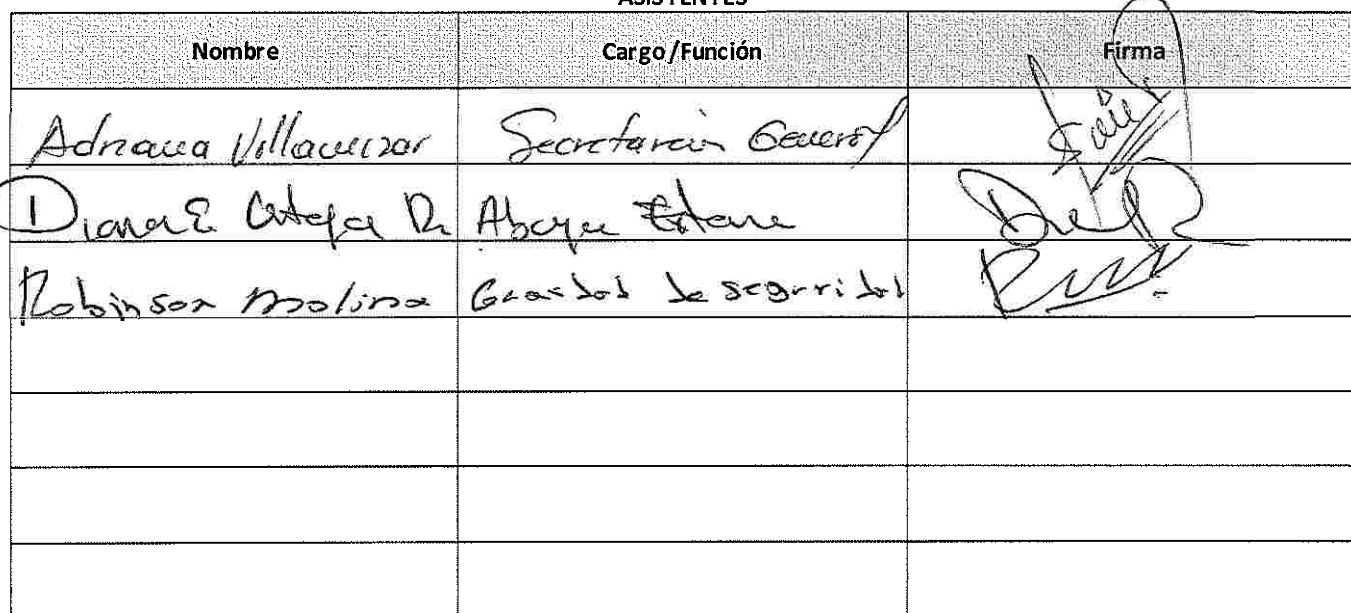 ASISTENTES
Nombre Cargo/Función Firma
Adriana Villamizar Secretaria General
Diana E. R. Abogada Externa
Robinson Molina Guarda de seguridad